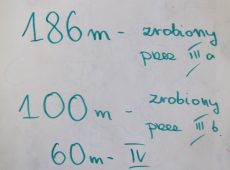 186 m - zrobiony
przez III a
100 m - zrobiony
przez III b.
60 m - IV